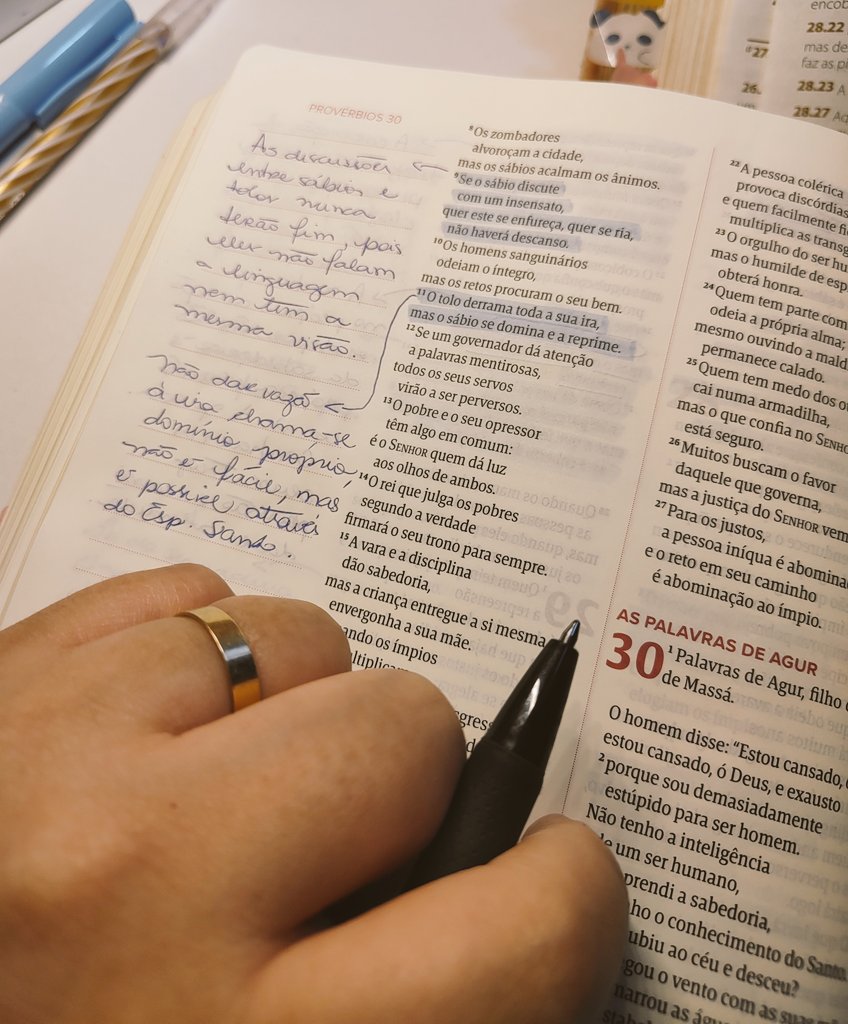 PROVÉRBIOS 30
As discussões
entre sábios e
tolos nunca
terão fim, pois
eles não falam
a linguagem
nem tem a
mesma visão.
não dar vazão
à ira chama-se
domínio próprio,
não é fácil, mas
é possível através
do Esp. Santo.
⁸Os zombadores
alvoroçam a cidade,
mas os sábios acalmam os ânimos.
⁹Se o sábio discute
com um insensato,
quer este se enfureça, quer se ria,
não haverá descanso.
¹⁰Os homens sanguinários
odeiam o íntegro,
mas os retos procuram o seu bem.
¹¹O tolo derrama toda a sua ira,
mas o sábio se domina e a reprime.
¹²Se um governador dá atenção
a palavras mentirosas,
todos os seus servos
virão a ser perversos.
¹³O pobre e o seu opressor
têm algo em comum:
é o SENHOR quem dá luz
aos olhos de ambos.
¹⁴O rei que julga os pobres
segundo a verdade
firmará o seu trono para sempre.
¹⁵A vara e a disciplina
dão sabedoria,
mas a criança entregue a si mesma
envergonha a sua mãe.
ando os ímpios
ultiplicam
²²A pessoa colérica
provoca discórdias
e quem facilmente
multiplica as
²³O orgulho do ser
mas o humilde de
obterá honra.
²⁴Quem tem parte com
odeia a própria alma;
mesmo ouvindo a
permanece calado.
²⁵Quem tem medo dos
cai numa armadilha,
mas o que confia no SENHOR
está seguro.
²⁶Muitos buscam o favor
daquele que governa,
mas a justiça do SENHOR vem
²⁷Para os justos,
a pessoa iníqua é
e o reto em seu caminho
é abominação ao ímpio.
AS PALAVRAS DE AGUR
30 ¹Palavras de Agur, filho
de Massá.
O homem disse: “Estou cansado,
estou cansado, ó Deus, e exausto
²porque sou demasiadamente
estúpido para ser homem.
Não tenho a inteligência
de um ser humano,
prendi a sabedoria,
ho o conhecimento do Santo.
ubiu ao céu e desceu?
gou o vento com as suas
narrou as
28.22
mas de
faz as
28.23 A
28.27